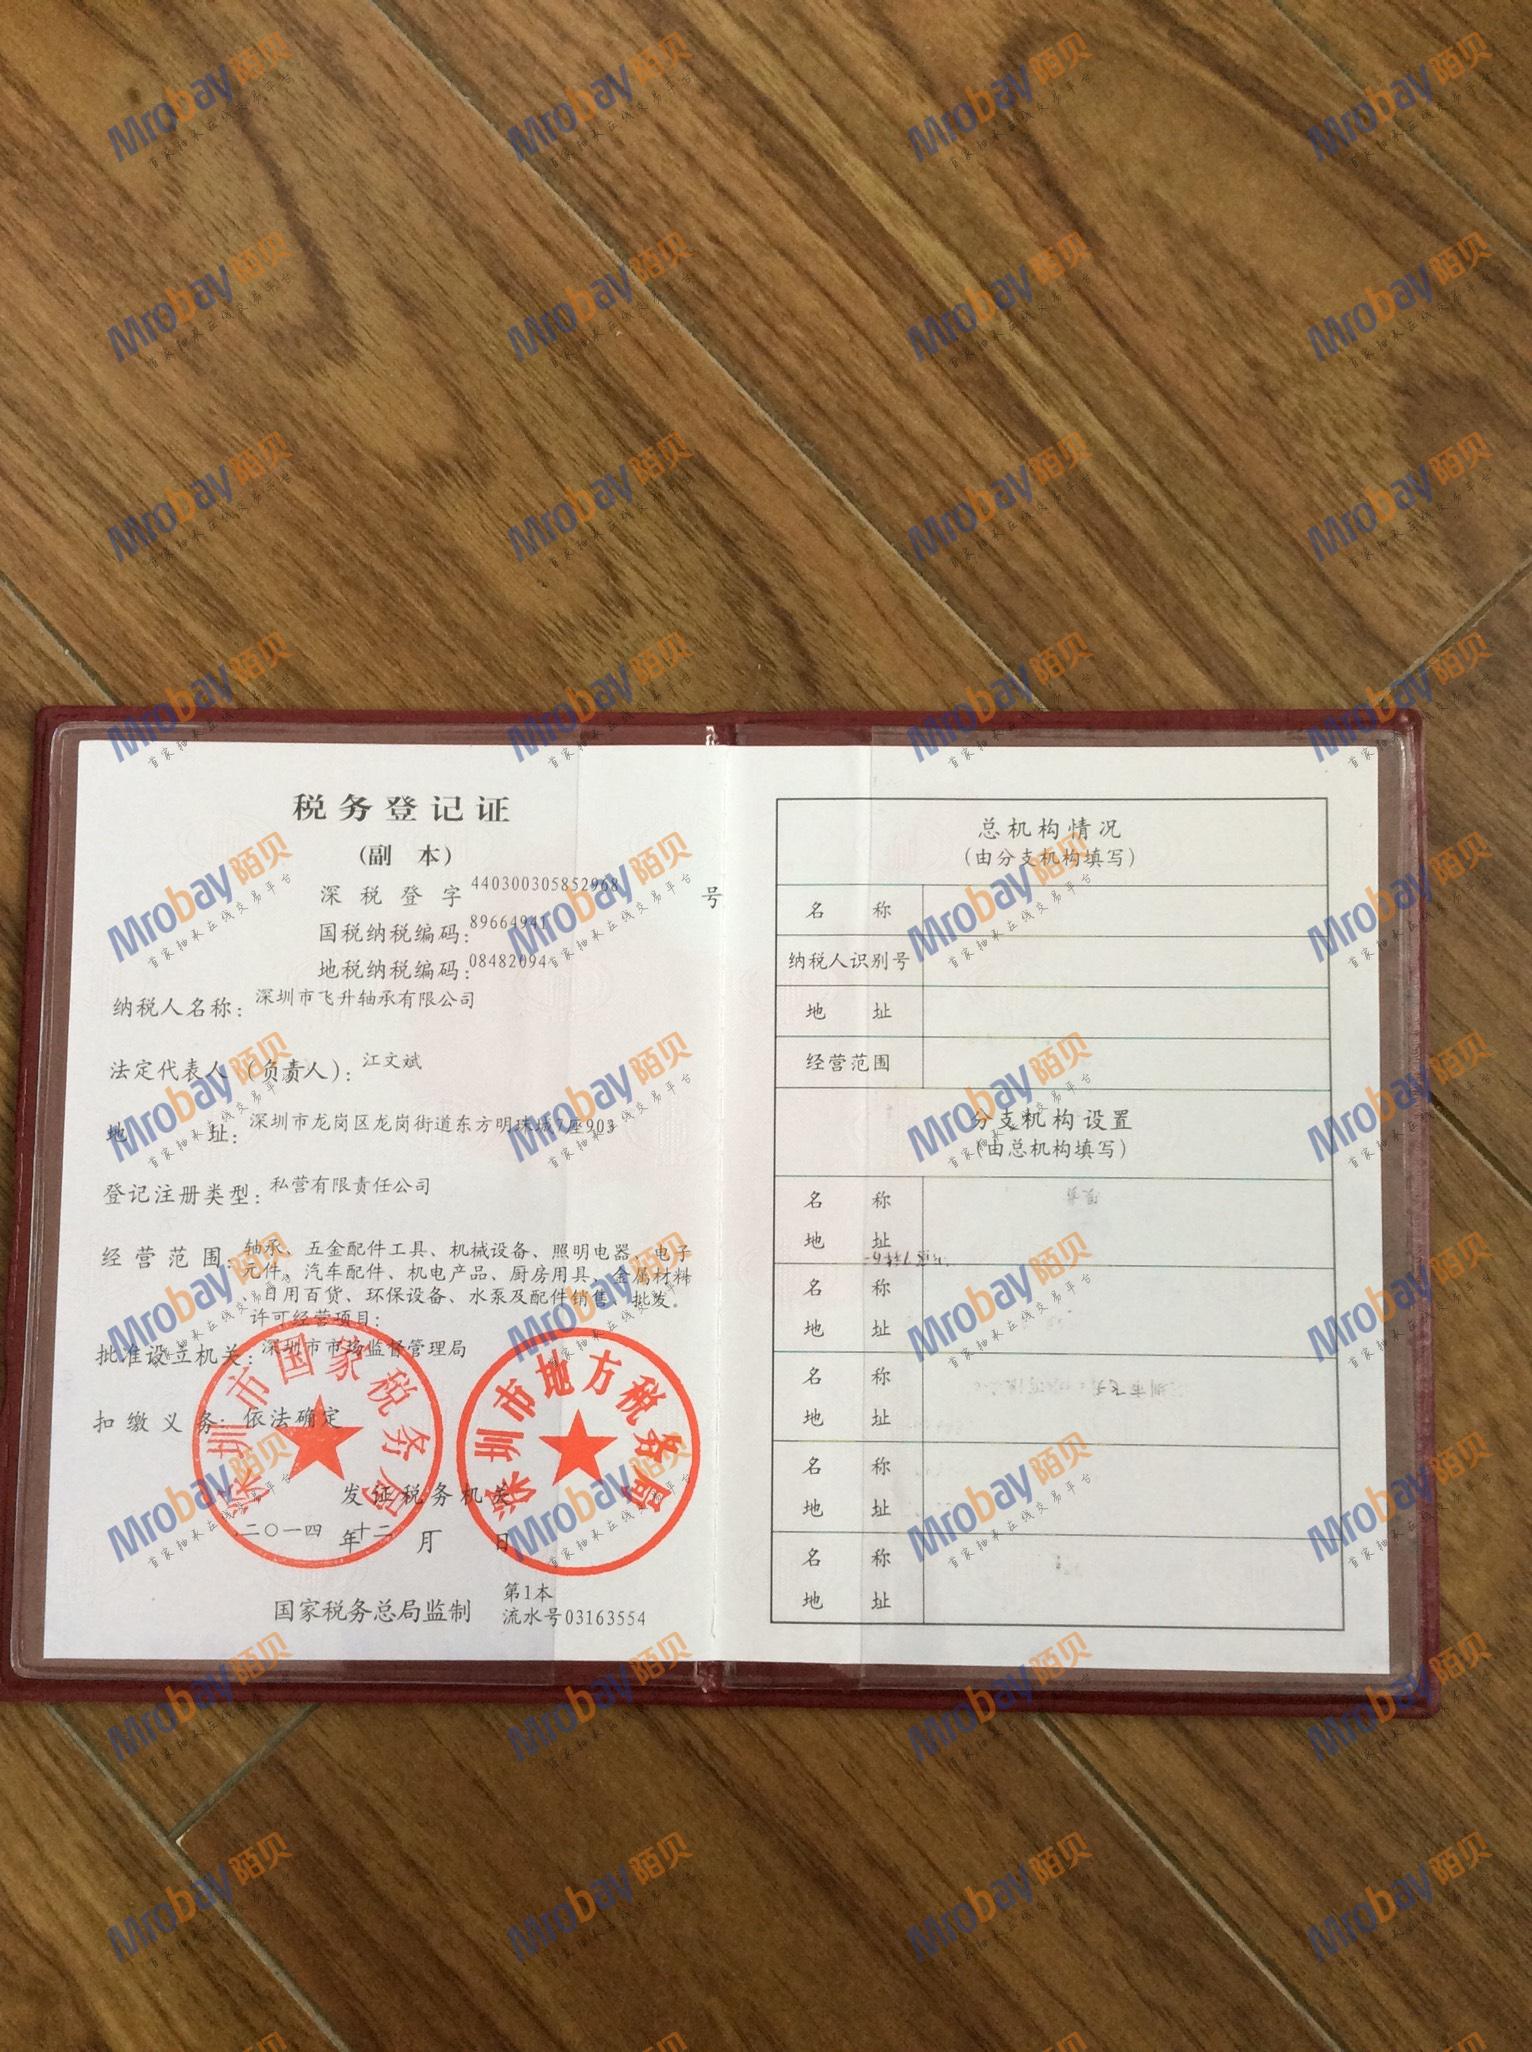 税务登记证
(副 本)
深税登字440300305852968号
国税纳税编码:89664941
地税纳税编码:08482094
纳税人名称:深圳市飞升轴承有限公司
法定代表人(负责人):江文斌
地 址:深圳市龙岗区龙岗街道东方明珠城7座903
登记注册类型:私营有限责任公司
经营范围:轴承、五金配件工具、机械设备、照明电器、电子
元件、汽车配件、机电产品、厨房用具、金属材料
、日用百货、环保设备、水泵及配件销售、批发。
许可经营项目:
批准设立机关:深圳市市场监督管理局
扣缴义务:依法确定
深圳市国家税务局
深圳市地方税务局
发证税务机关
二〇一四年十二月 日
国家税务总局监制
第1本
流水号03163554
总机构情况
(由分支机构填写)
名 称
纳税人识别号
地 址
经营范围
分支机构设置
(由总机构填写)
名 称
地 址
名 称
地 址
名 称
地 址
名 称
地 址
名 称
地 址
Mrobay陌贝
首家轴承在线交易平台